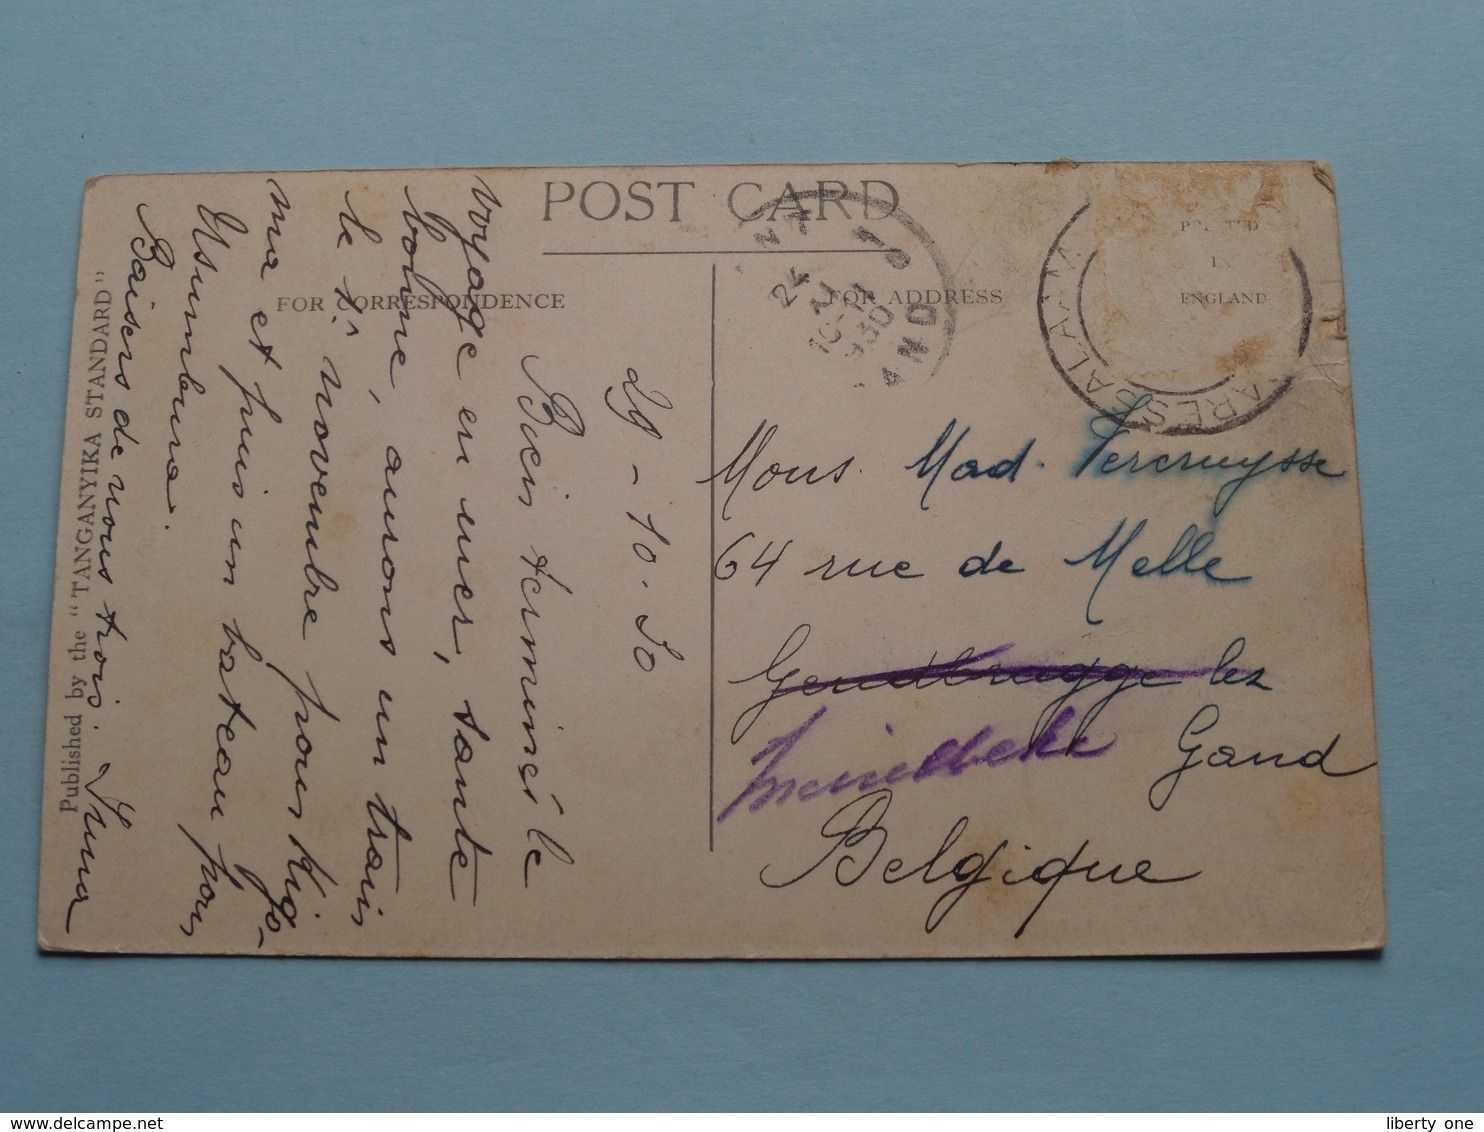 POST CARD
FOR CORRESPONDENCE
FOR ADDRESS
ENGLAND
DARESSALAAM
24
1930
29 - 10 - 30
Bien terminé le
voyage en mer, santé
bonne, aurons un train
le 1r novembre pour Kigo-
ma et puis un bateau pour
Usumbura.
Baisers de nous trois.
Published by the "TANGANYIKA STANDARD"
Mons. Mad. Vercruysse
64 rue de Melle
Gendbrugge lez
Gand
Belgique
liberty one